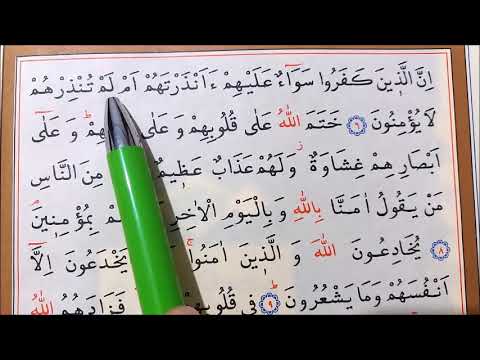 اِنَّ الَّذ۪ينَ كَفَرُوا سَوَٓاءٌ عَلَيْهِمْ ءَاَنْذَرْتَهُمْ اَمْ لَمْ تُنْذِرْهُمْ
لَا يُؤْمِنُونَ ﴿٦﴾ خَتَمَ اللّٰهُ عَلٰى قُلُوبِهِمْ وَ عَلٰى وَ عَلٰٓى
اَبْصَارِهِمْ غِشَاوَةٌ وَلَهُمْ عَذَابٌ عَظ۪يمٌ مِنَ النَّاسِ
مَنْ يَقُولُ اٰمَنَّا بِاللّٰهِ وَ بِالْيَوْمِ الْاٰخِرِ بِمُؤْمِن۪ينَ
﴿٨﴾ يُخَادِعُونَ اللّٰهَ وَ الَّذ۪ينَ اٰمَنُوا يَخْدَعُونَ اِلَّٓا
اَنْفُسَهُمْ وَمَا يَشْعُرُونَ ﴿٩﴾ ف۪ي قُلُوبِهِمْ فَزَادَهُمُ اللّٰهُ